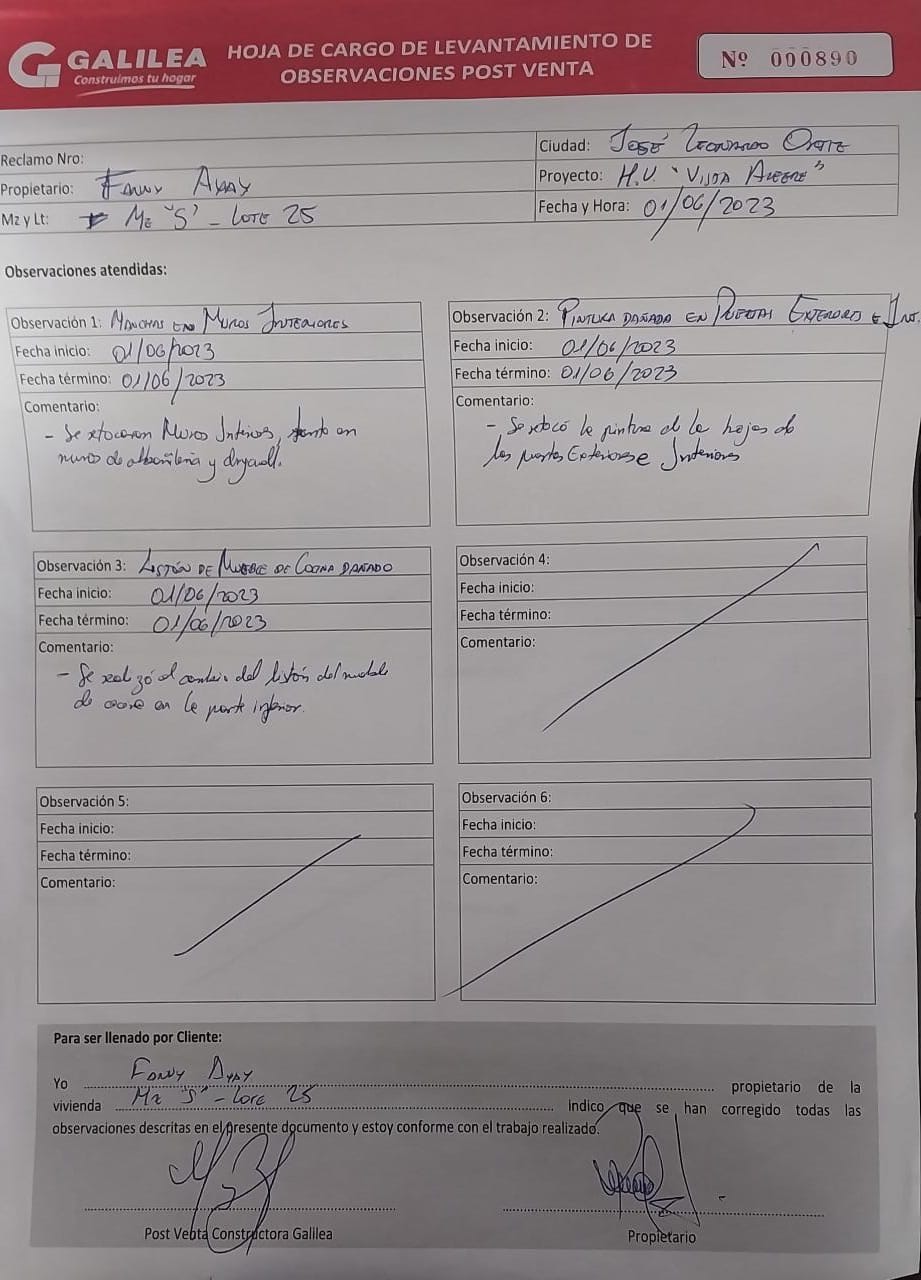 GALILEA
Construimos tu hogar
HOJA DE CARGO DE LEVANTAMIENTO DE
OBSERVACIONES POST VENTA
Nº 000890
Reclamo Nro:
Propietario: Fanny Ayay
Mz y Lt: Mz "S" - Lote 25
Ciudad: José Leonardo Ortiz
Proyecto: H.U. "Vista Alegre"
Fecha y Hora: 01/06/2023
Observaciones atendidas:
Observación 1: Manchas en Muros Interiores
Fecha inicio: 01/06/2023
Fecha término: 01/06/2023
Comentario:
- Se retocaron Muros Interiores, tanto en
muros de albañilería y drywall.
Observación 2: Pintura dañada en Puertas Exteriores e Int.
Fecha inicio: 01/06/2023
Fecha término: 01/06/2023
Comentario:
- Se retocó la pintura de la hojas de
las puertas Exteriores e Interiores
Observación 3: Listón de Mueble de Cocina dañado
Fecha inicio: 01/06/2023
Fecha término: 01/06/2023
Comentario:
- Se realizó el cambio del listón del mueble
de cocina en la parte inferior.
Observación 4:
Fecha inicio:
Fecha término:
Comentario:
Observación 5:
Fecha inicio:
Fecha término:
Comentario:
Observación 6:
Fecha inicio:
Fecha término:
Comentario:
Para ser llenado por Cliente:
Yo Fanny Ayay propietario de la
vivienda Mz "S" - Lote 25 Indico que se han corregido todas las
observaciones descritas en el presente documento y estoy conforme con el trabajo realizado.
Post Venta Constructora Galilea
Propietario